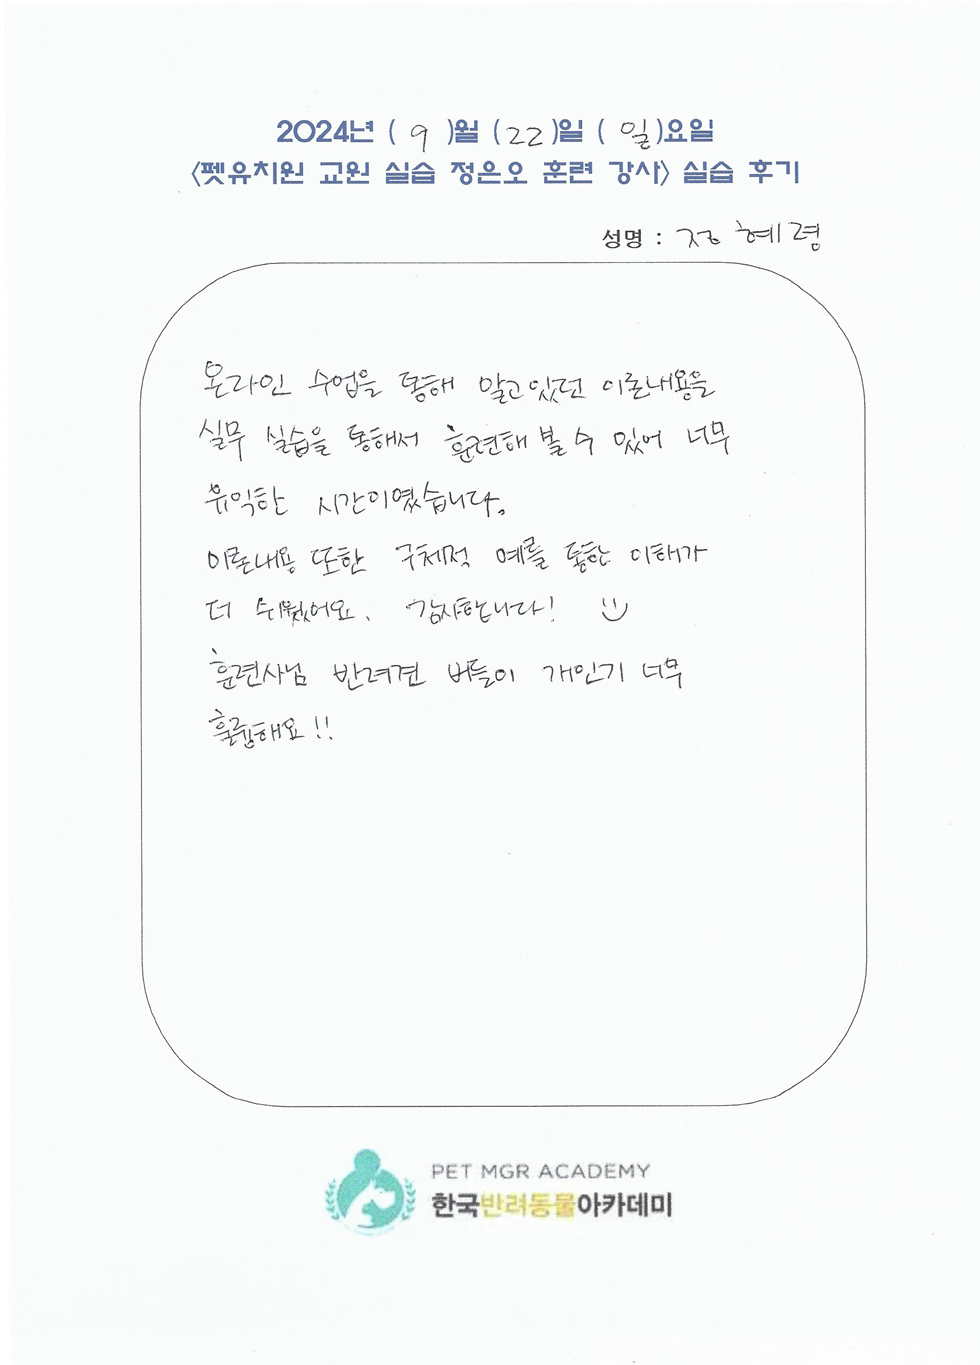 2024년 ( 9 )월 (22)일 ( 일)요일
<펫유치원 교원 실습 정은오 훈련 강사> 실습 후기
성명 : 정혜령
온라인 수업을 통해 알고있던 이론내용을
실무 실습을 통해서 훈련해 볼 수 있어 너무
유익한 시간이였습니다.
이론내용 또한 구체적 예를 통한 이해가
더 쉬웠어요. 감사합니다! :)
훈련사님 반려견 버들이 개인기 너무
훌륭해요!!
PET MGR ACADEMY
한국반려동물아카데미